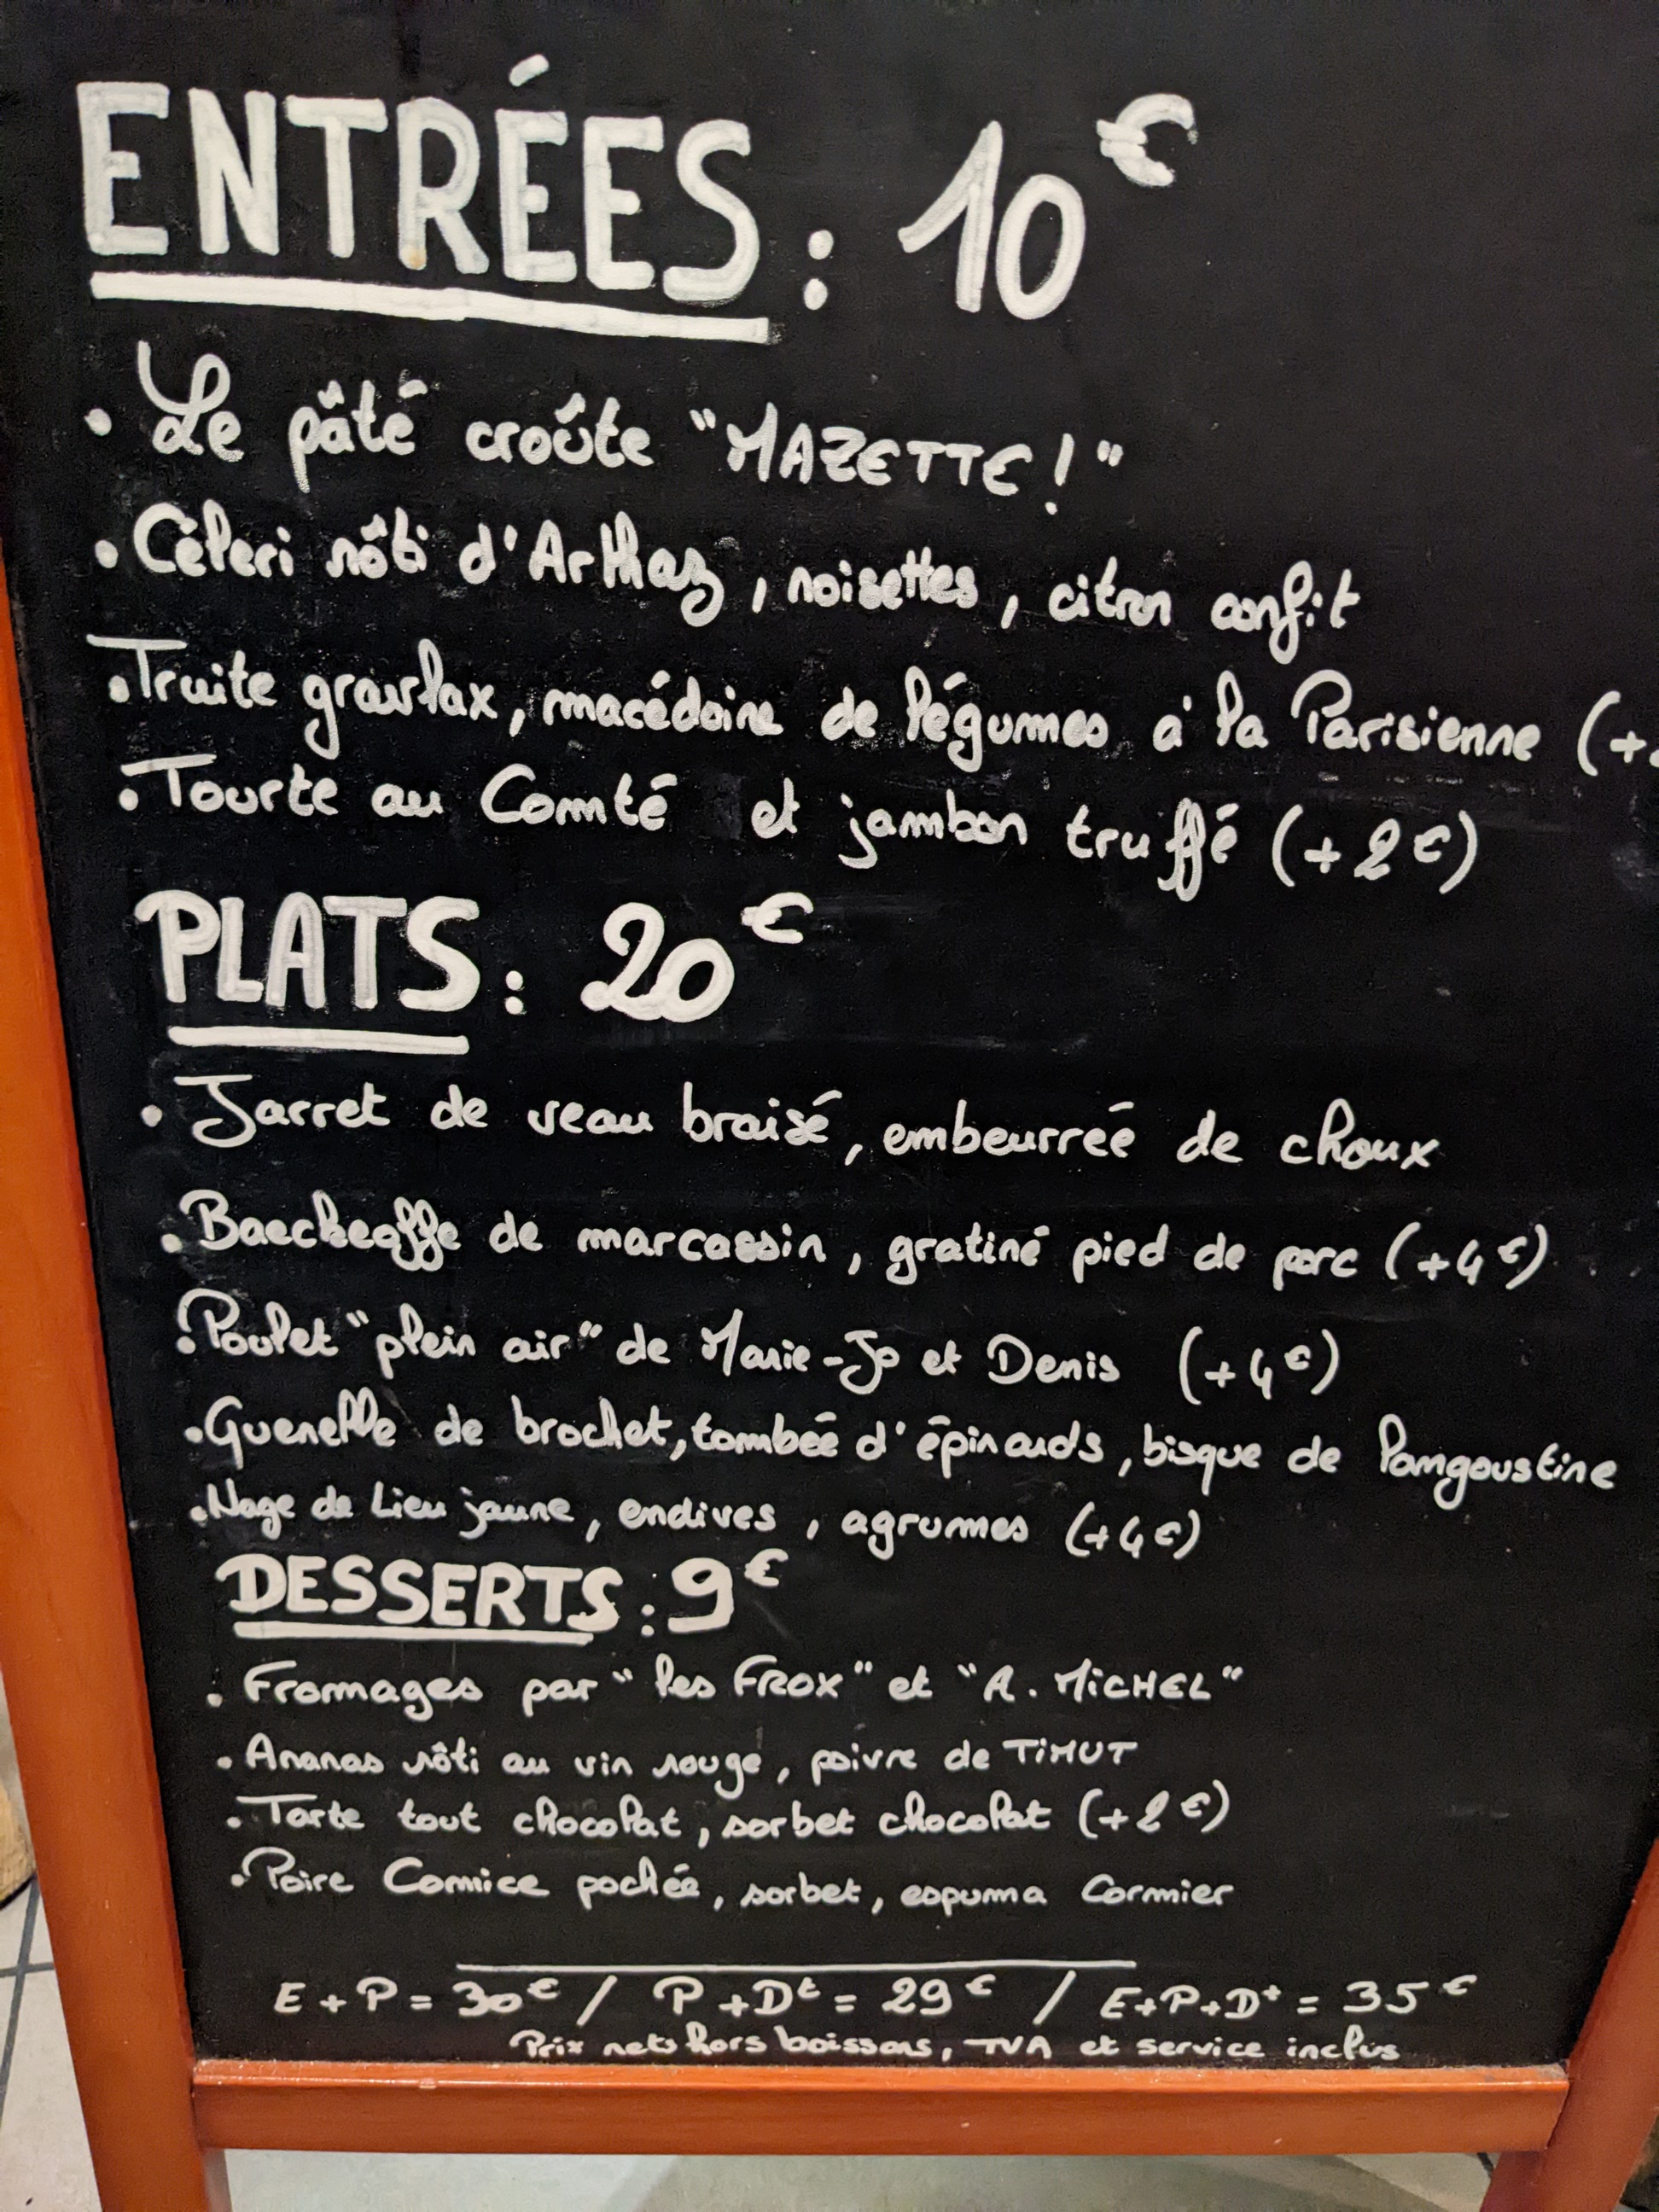 ENTRÉES : 10€
• Le pâté croûte "MAZETTE !"
• Céleri rôti d'Arthaz, noisettes, citron confit
• Truite gravlax, macédoine de légumes à la Parisienne (+
• Tourte au Comté et jambon truffé (+2€)
PLATS : 20€
• Jarret de veau braisé, embeurrée de choux
• Baeckeoffe de marcassin, gratiné pied de porc (+4€)
• Poulet "plein air" de Marie-Jo et Denis (+4€)
• Quenelle de brochet, tombée d'épinards, bisque de langoustine
• Nage de Lieu jaune, endives, agrumes (+4€)
DESSERTS : 9€
• Fromages par "les FROX" et "A. MiCHEL"
• Ananas rôti au vin rouge, poivre de TiMUT
• Tarte tout chocolat, sorbet chocolat (+2€)
• Poire Comice pochée, sorbet, espuma Cormier
E+P = 30€ / P+Dt = 29€ / E+P+Dt = 35€
Prix nets hors boissons, TVA et service inclus